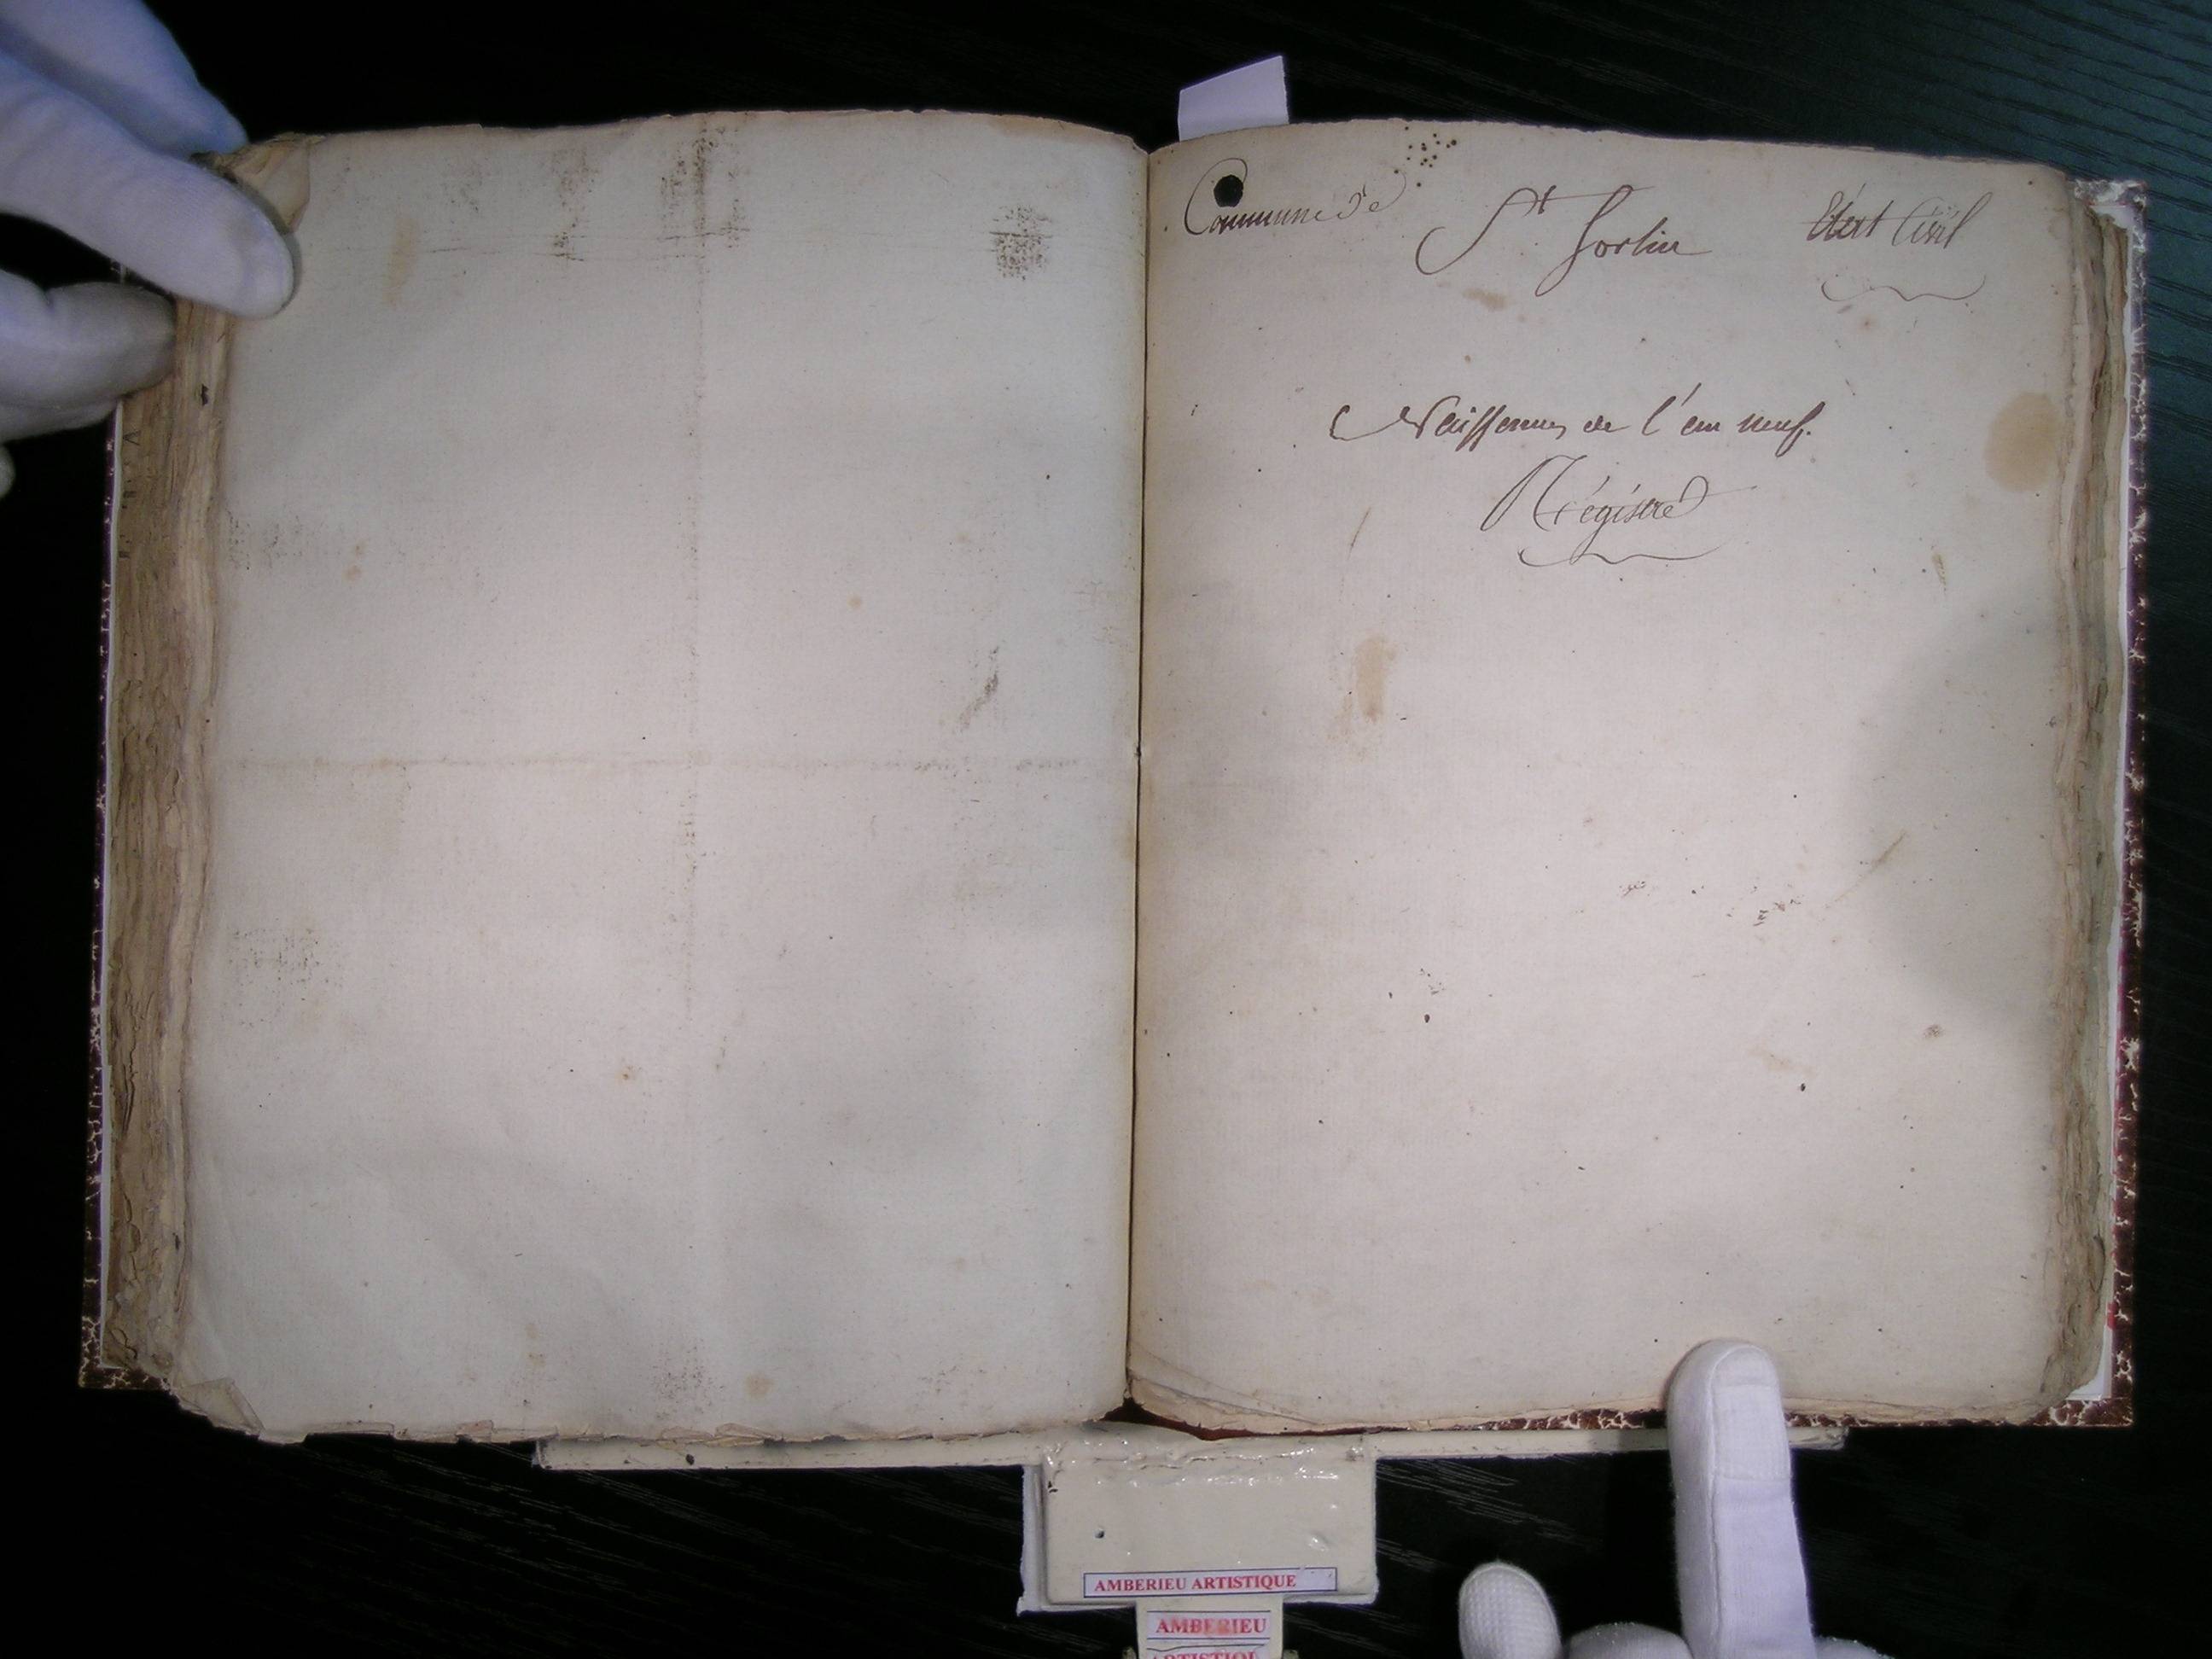 Commune de St Sorlin Etat Civil
Naissances de l'an neuf.
Régistre
AMBERIEU ARTISTIQUE
AMBERIEU
ARTISTIQUE